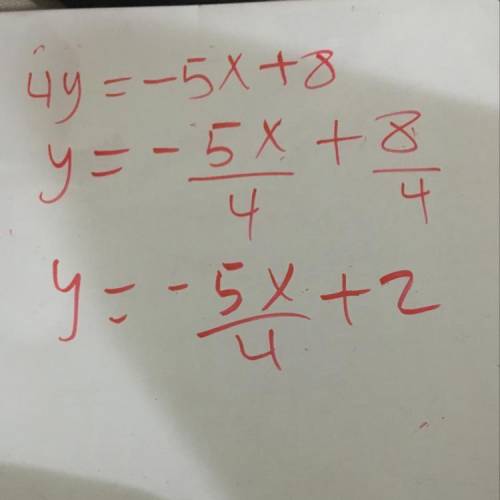 4y = -5x + 8
y = - 5x/4 + 8/4
y = - 5x/4 + 2